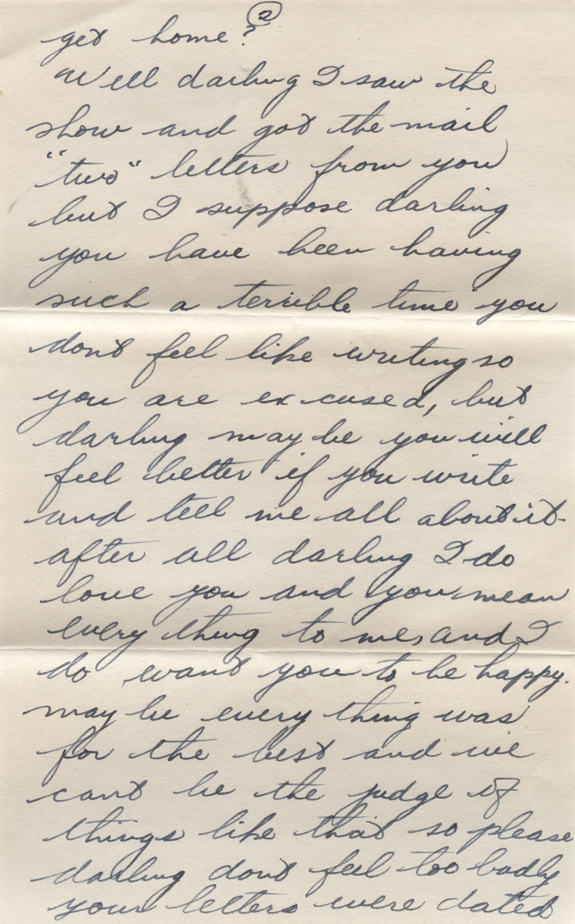 ②
get home?
Well darling I saw the
show and got the mail
"two" letters from you
but I suppose darling
you have been having
such a terrible time you
dont feel like writing so
you are excused, but
darling may be you will
feel better if you write
and tell me all about it.
after all darling I do
love you and you mean
every thing to me, and I
do want you to be happy.
may be every thing was
for the best and we
cant be the judge of
things like that so please
darling dont feel too badly
your letters were dated